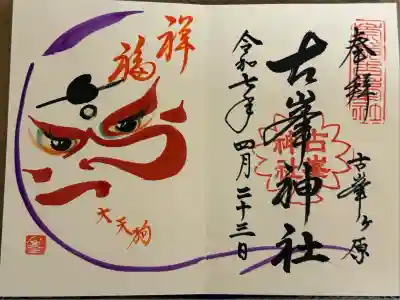 奉拝
古峯ヶ原
古峯神社
古峯
神社
令和七年四月二十三日
祥
福
大天狗